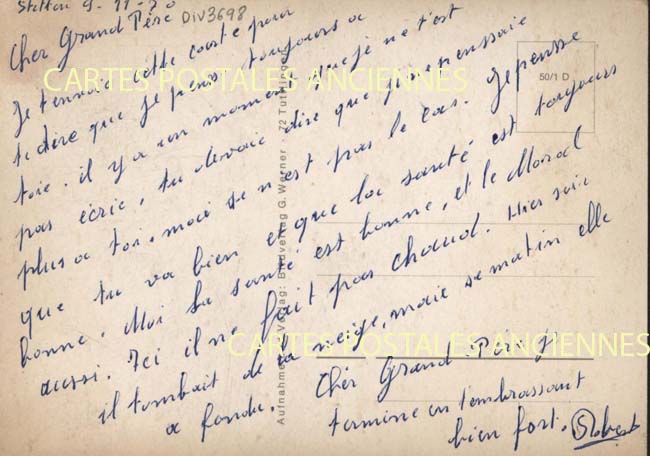 Stetten 9-11-70
DIV3698
Cher Grand Père
Je t'envoie cette carte pour
te dire que je pense toujours a
toie. il y a un moment que je ne t'est
pas écrie, tu devaie dire que je ne penssaie
plus a toi, mais se n'est pas le cas. Je pensse
que tu va bien et que la santé est toujours
bonne. Moi la santé est bonne, et le Moral
aussi. Ici il ne fait pas chaud. Hier soir
il tombait de la neige, mais se matin elle
a fondu. Cher Grand Père je
termine en t'embrassant
bien fort. Robert
50/1 D
Aufnahme Verlag: Bildverlag G. Werner · 72 Tuttlingen
CARTES POSTALES ANCIENNES
CARTES POSTALES ANCIENNES